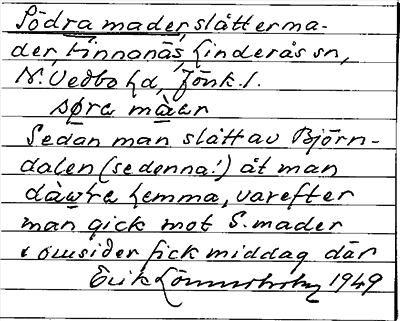 Södra mader, slåtterma-
der, Hinnonäs, Linderås sn,
N. Vedbo hd, Jönk. l.
søra màar
Sedan man slått av Björn-
dalen (se denna!) åt man
dàwra hemma, varefter
man gick mot S. mader
& omsider fick middag där
Erik 1949